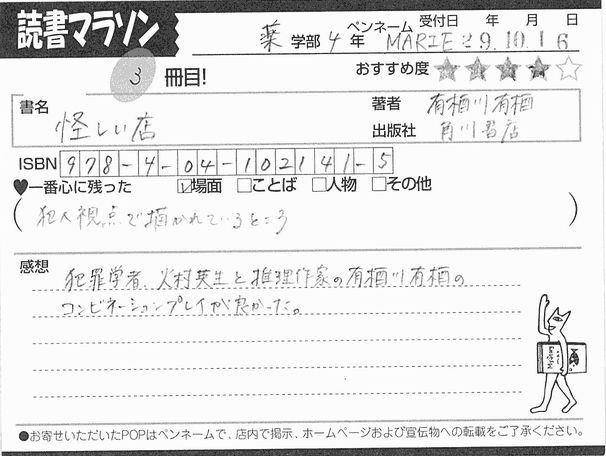 読書マラソン
3 冊目!
薬 学部 4 年 ペンネーム MARIE
受付日 年 月 日
29.10.16
おすすめ度 ★★★★☆
書名 怪しい店
著者 有栖川有栖
出版社 角川書店
ISBN 978-4-04-102141-5
♥一番心に残った ☑場面 □ことば □人物 □その他
(犯人視点で描かれているところ)
感想
犯罪学者、火村英生と推理作家の有栖川有栖の
コンビネーションプレイが良かった。
●お寄せいただいたPOPはペンネームで、店内で掲示、ホームページおよび宣伝物への転載をご了承ください。